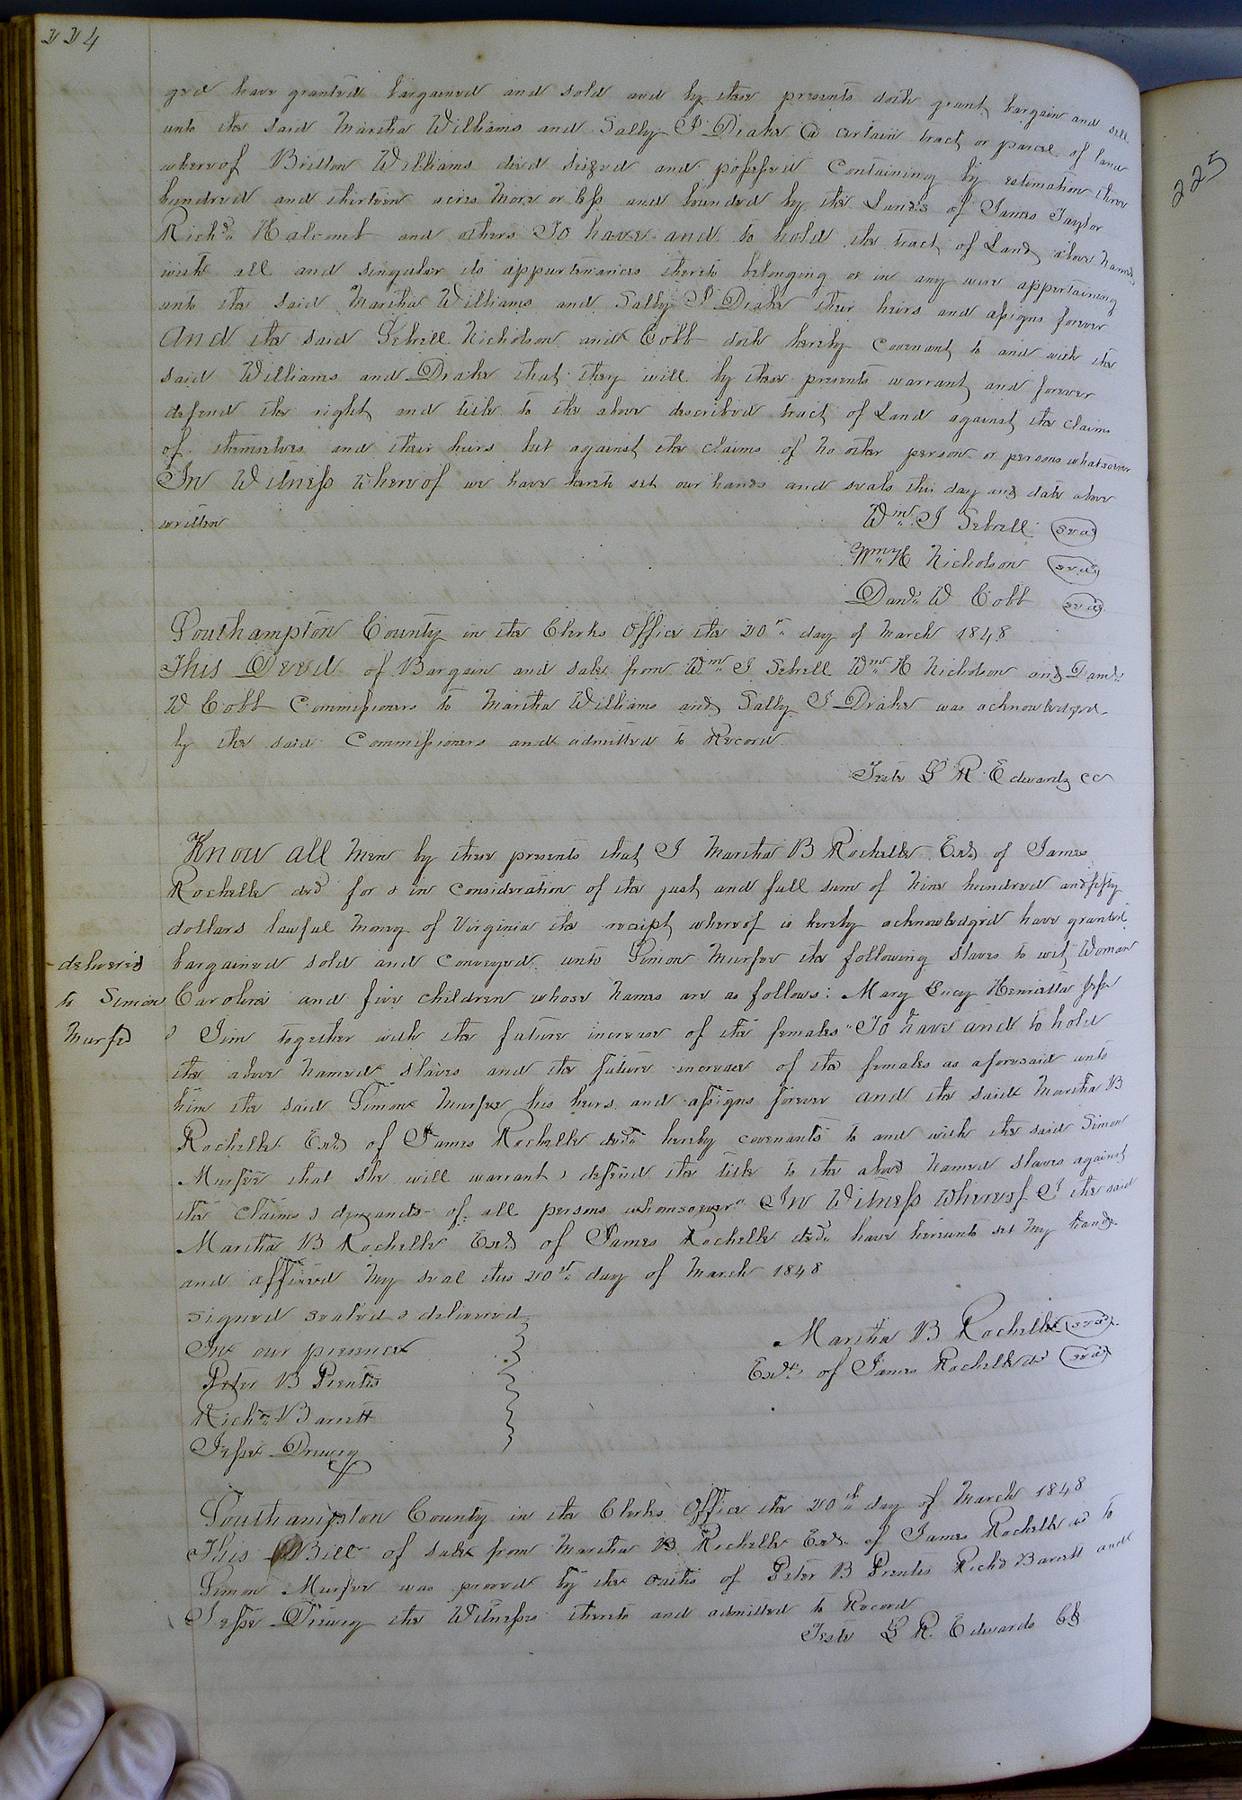 224
ged have granted bargained and sold and by these presents doth grant bargain and sell
unto the said Martha Williams and Sally I Drake a certain tract or parcel of land
whereof Britton Williams died seized and possessed Containing by estimation three
hundred and thirteen acres more or less and bounded by the Lands of James Taylor
Richd. Halcomb and others To have and to hold the tract of Land above named
with all and singular its appurtenances thereto belonging or in any wise appertaining
unto the said Martha Williams and Sally I Drake their heirs and assigns forever
And the said Sebrell Nicholson and Cobb doth hereby Covenant to and with the
said Williams and Drake that they will by these presents warrant and forever
defend the right and title to the above described tract of Land against the claims
of themselves and their heirs but against the claims of no other person or persons whatsoever
In Witness Whereof we have hereto set our hands and seals this day and date above
written
Wm. I Sebrell seal
Wm. H Nicholson seal
Danl. W Cobb seal
Southampton County in the Clerks Office the 20th day of March 1848
This Deed of Bargain and sale from Wm. I Sebrell Wm. H Nicholson and Danl.
W Cobb Commissioners to Martha Williams and Sally I Drake was acknowledged
by the said Commissioners and admitted to Record
Teste L R Edwards CC
225
Know all Men by these presents that I Martha B Rochelle Exx of James
Rochelle decd for & in Consideration of the just and full sum of Nine hundred and fifty
dollars lawful Money of Virginia the receipt whereof is hereby acknowledged have granted
bargained sold and Conveyed unto Simon Murfee the following slaves to wit, Woman
delivered
to Simon
Murfee
Caroline and five children whose names are as follows: Mary Lucy Henrietta Jesse
& Jim together with the future increase of the females "To have and to hold
the above named slaves and the future increase of the females as aforesaid unto
him the said Simon Murfee his heirs and assigns forever and the said Martha B
Rochelle Exx of James Rochelle decd. hereby covenants to and with the said Simon
Murfee that she will warrant & defend the title to the above named slaves against
the claims & demands of all persons whomsoever" In Witness whereof I the said
Martha B Rochelle Exx of James Rochelle decd. have hereunto set my hand
and affixed my seal this 20th day of March 1848
signed sealed & delivered
In our presence
Martha B Rochelle seal
Peter B Prentis
Exx. of James Rochelle dd seal
Richd. Barrett
Jesse Drewry
Southampton County in the Clerks Office the 20th day of March 1848
This Bill of sale from Martha B Rochelle Exx. of James Rochelle dd to
Simon Murfee was proved by the oaths of Peter B Prentis Richd Barrett and
Jesse Drewry the Witnesses thereto and admitted to Record
Teste L R. Edwards CC